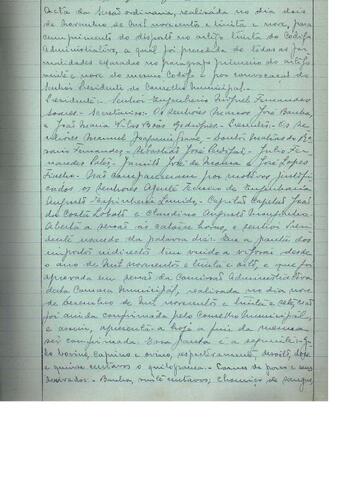 Acta da Sessão ordinaria, realisada no dia dois
de Novembro de mil novecentos e trinta e nove, para
cumprimento do disposto no artigo trinta do Codigo
Administrativo, a qual foi precedida de todas as for-
malidades exaradas no paragrapho primeiro do artigo
vinte e nove do mesmo Codigo e por convocação do
Senhor Presidente do Conselho Municipal.
Presidente - Senhor Engenheiro Miguel Fernandes
Soares - Secretarios: Os Senhores Marcos José Banha,
e José Maria Rodrigues - Presentes: Os Se-
nhores Manuel Joaquim
Fernandes - Sebastião José - Julio Fer-
nandes - José de Matos e José Lopes
- Não compareceram por motivos justifi-
cados os Senhores Agente Tecnico de Engenharia
Augusto - Capitão João
da Costa e Claudino Augusto
Aberta a sessão ás catorze horas, o senhor Presi-
dente usando da palavra diz: Que a pauta dos
impostos indirectos tem vindo a vigorar desde
o ano de mil novecentos e trinta e oito, e que foi
aprovada em sessão da Comissão Administrativa
desta Camara Municipal, realisada no dia nove
de Dezembro de mil novecentos e trinta e sete,
foi ainda confirmada pelo Conselho Municipal,
e assim, apresenta-a hoje a fim da mesma
ser confirmada. Essa pauta é a seguinte: - Ga-
do bovino, caprino e ovino, respectivamente, dezoito, doze
e quinze centavos o quilograma. - Carnes de porco e seus
derivados. - Banha, vinte centavos, chouriço de sangue,